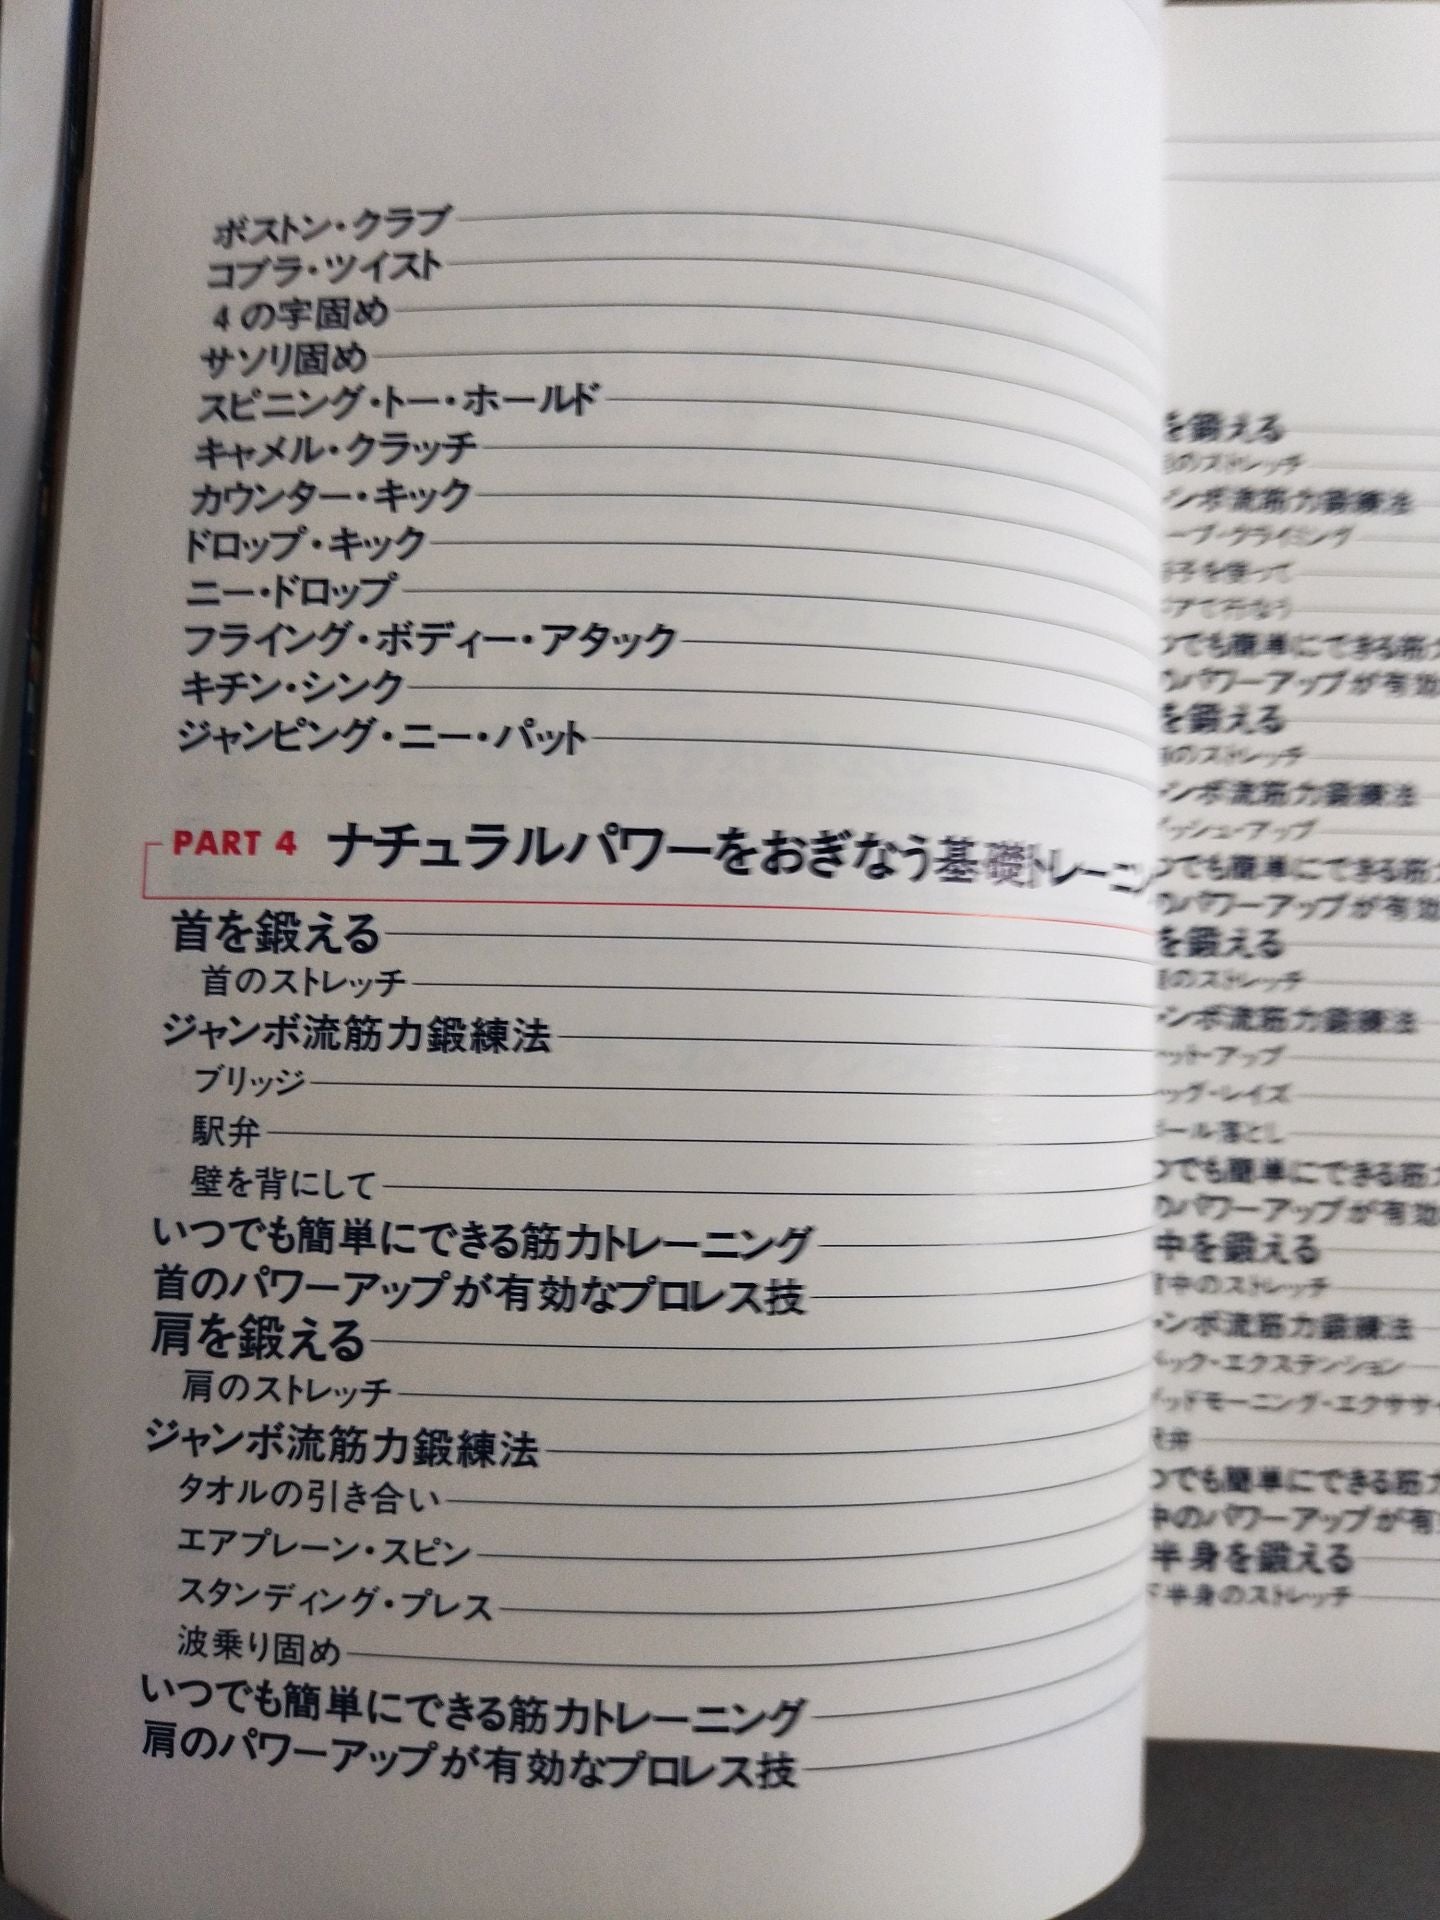 ボストン・クラブ
コブラ・ツイスト
4の字固め
サソリ固め
スピニング・トー・ホールド
キャメル・クラッチ
カウンター・キック
ドロップ・キック
ニー・ドロップ
フライング・ボディー・アタック
キチン・シンク
ジャンピング・ニー・パット
PART 4 ナチュラルパワーをおぎなう基礎トレーニン
首を鍛える
首のストレッチ
ジャンボ流筋力鍛練法
ブリッジ
駅弁
壁を背にして
いつでも簡単にできる筋力トレーニング
首のパワーアップが有効なプロレス技
肩を鍛える
肩のストレッチ
ジャンボ流筋力鍛練法
タオルの引き合い
エアプレーン・スピン
スタンディング・プレス
波乗り固め
いつでも簡単にできる筋力トレーニング
肩のパワーアップが有効なプロレス技
を鍛える
のストレッチ
ンボ流筋力鍛練法
ープ・クライミング
子を使って
アで行なう
つでも簡単にできる筋
のパワーアップが有効
を鍛える
のストレッチ
ンボ流筋力鍛練法
ッシュ・アップ
つでも簡単にできる筋
のパワーアップが有効
を鍛える
のストレッチ
ンボ流筋力鍛練法
ット・アップ
ッグ・レイズ
ール落とし
つでも簡単にできる筋
のパワーアップが有効
中を鍛える
中のストレッチ
ンボ流筋力鍛練法
ック・エクステンション
ッドモーニング・エクササ
弁
つでも簡単にできる筋
中のパワーアップが有
半身を鍛える
下半身のストレッチ